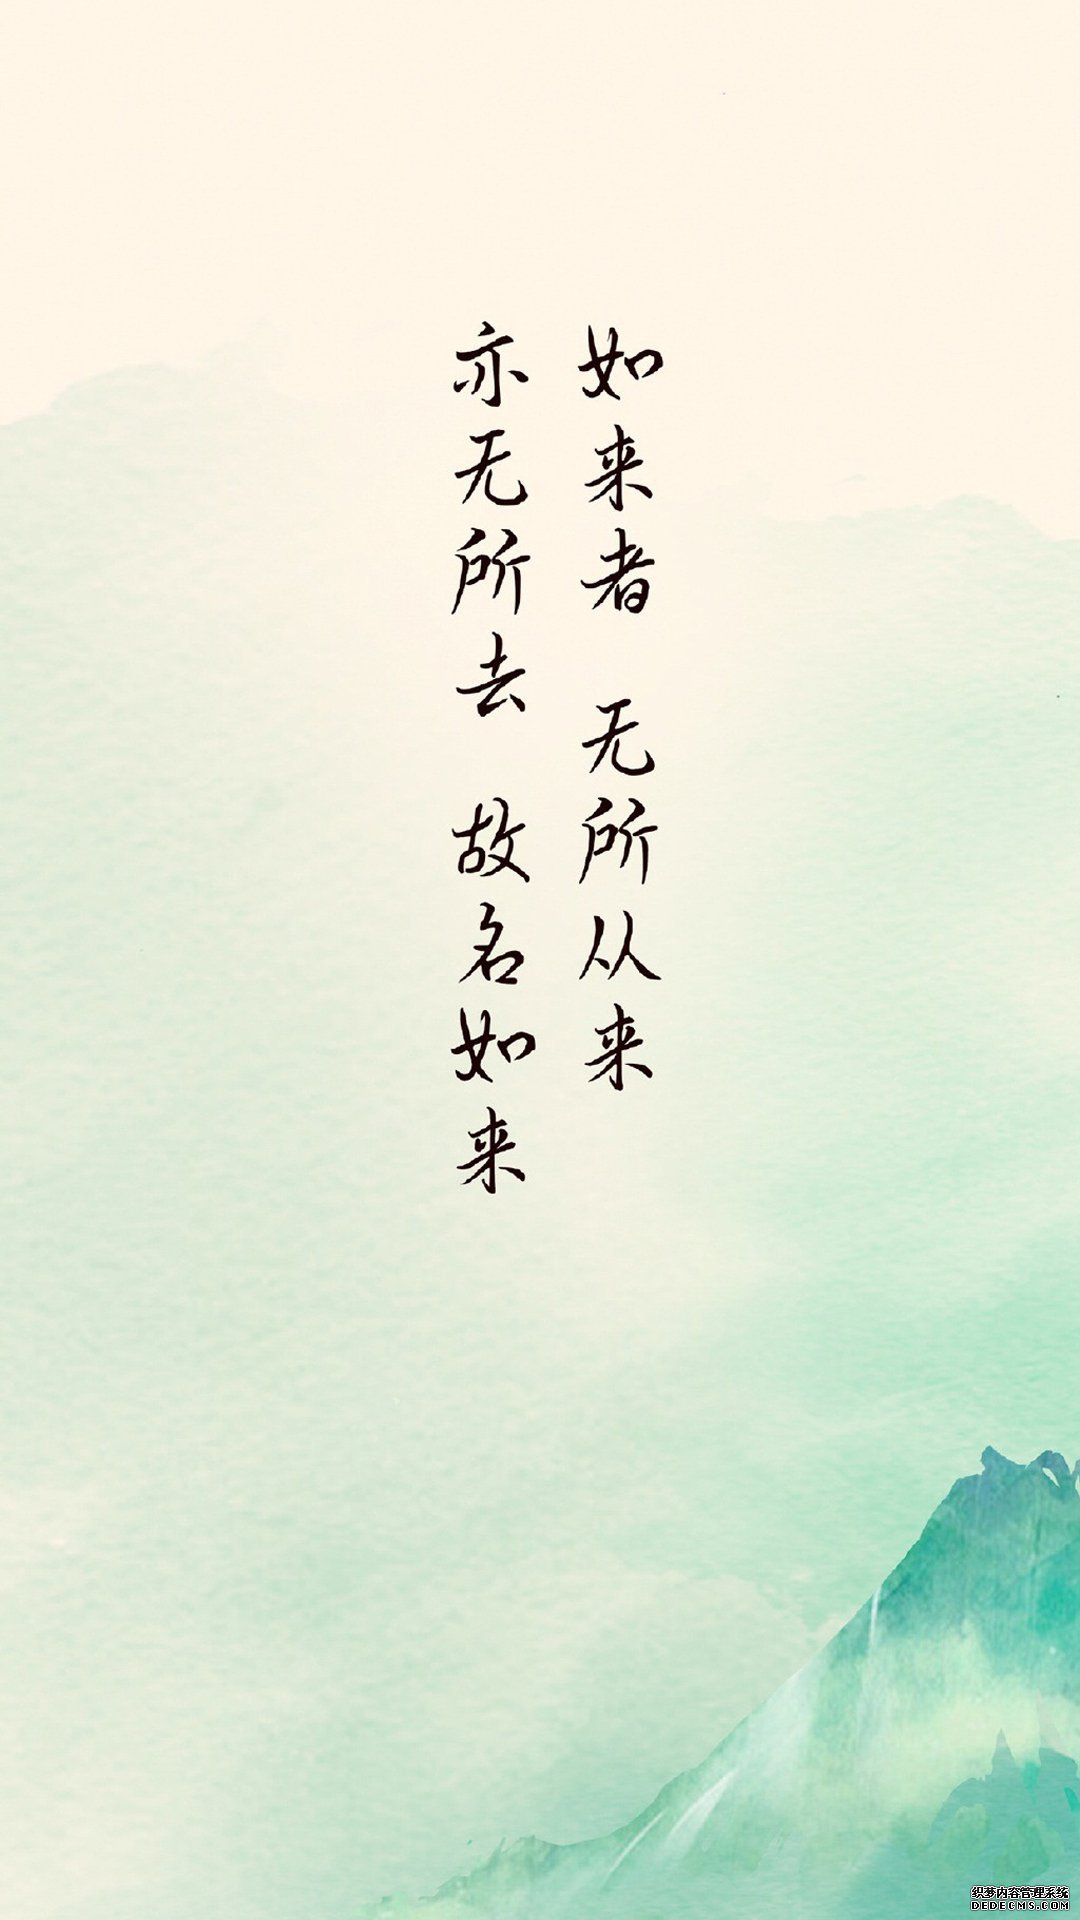 如来者 无所从来
亦无所去 故名如来
织梦内容管理系统
DEDECMS.COM